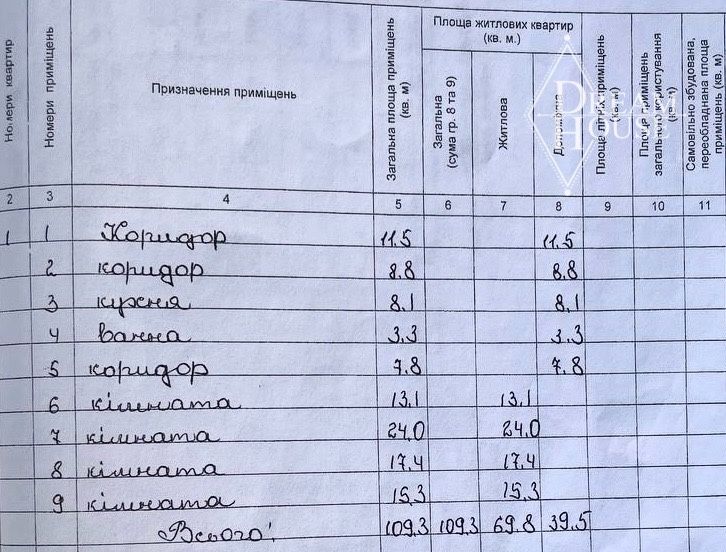 Номери квартир
Номери приміщень
Призначення приміщень
Загальна площа приміщень (кв. м)
Площа житлових квартир (кв. м.)
Загальна (сума гр. 8 та 9)
Житлова
Допоміжна
Площа приміщень (кв. м)
Площа приміщень загального користування (кв. м)
Самовільно збудована, переобладнана площа приміщень (кв. м)
DREAM HOUSE
2 3 4 5 6 7 8 9 10 11
1 1 Коридор 11.5 11.5
2 коридор 8.8 8.8
3 кухня 8.1 8.1
4 ванна 3.3 3.3
5 коридор 7.8 7.8
6 кімната 13.1 13.1
7 кімната 24.0 24.0
8 кімната 17.4 17.4
9 кімната 15.3 15.3
Всього: 109.3 109.3 69.8 39.5